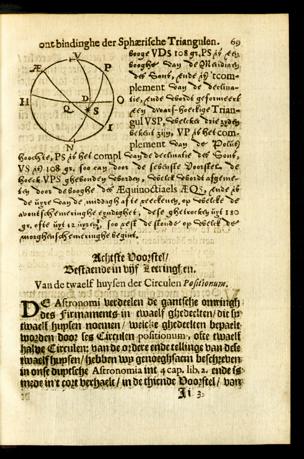 ontbindinghe der Sphærische Triangulen. 69
V
Æ
P
H
O
D
Q
S
I
booge VDS 108 gr, PS is een
booghe van de Meridiaen
der Son, ende is 't com-
plement van de declina-
tie, ende wordt geformeert
een dwars-hoeckige Trian-
gul VSP, welckes drie zijden
bekent zijn, VP is het com-
plement van de Polus
hoochte, PS is het compl van de declinatie der Son,
VS is 108 gr, soo can door de sevenste Voorstel de
hoeck VPS ghevonden worden, welck wordt afgeme-
ten door de booghe des Æquinoctiaels ÆQ, ende is
de uyre van de middag af te reeckenen, op welcke de
avontschemeringhe eyndighet, dese ghetrocken uyt 180
gr, ofte uyt 12 uyren, soo rest de stonde op welck de
morghenschemeringhe begint.
Achtste Voorstel/
Bestaende in vijf Leeringhen.
Van de twaelf huysen der Circulen Positionum.
DE Astronomi verdeilen de gantsche omringh
des Firmaments in twaelf ghedeelten/ die sy
twaelf huysen noemen/ welcke ghedeelten bepaelt
worden door ses Circulen positionum, ofte twaelf
halve Circulen: van de ordere ende tellinge van dese
twaelf huysen/ hebben wy genoeghsaem beschreven
in onse duytsche Astronomia int 4 cap. lib. 2. ende is
mede in't cort verhaelt/ in de thiende Voorstel/ van
Ii 3